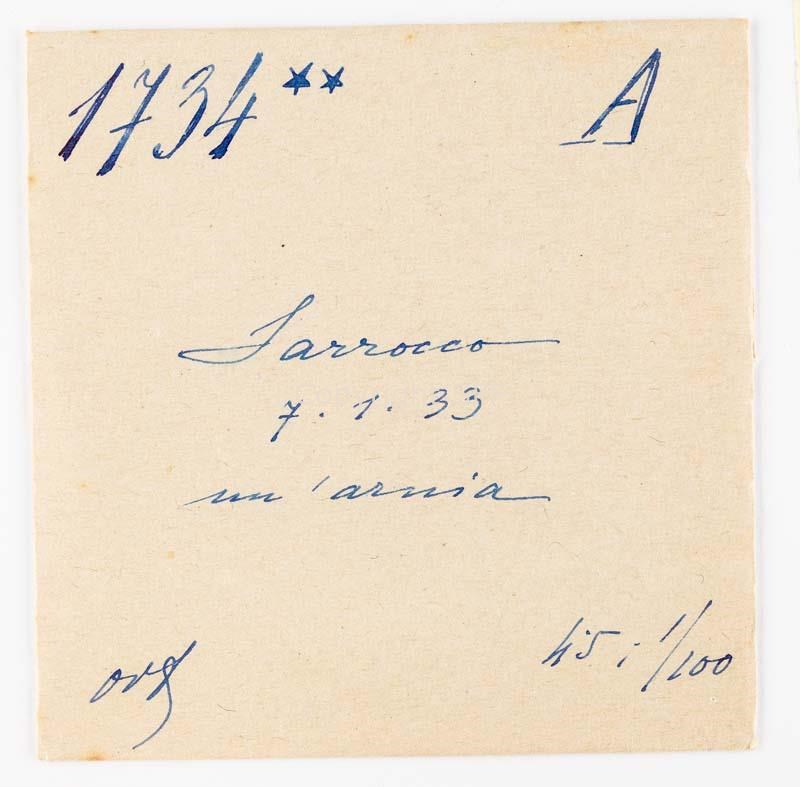 1734** A
Sarrocco
7.1.33
un'arnia
45; 1/100